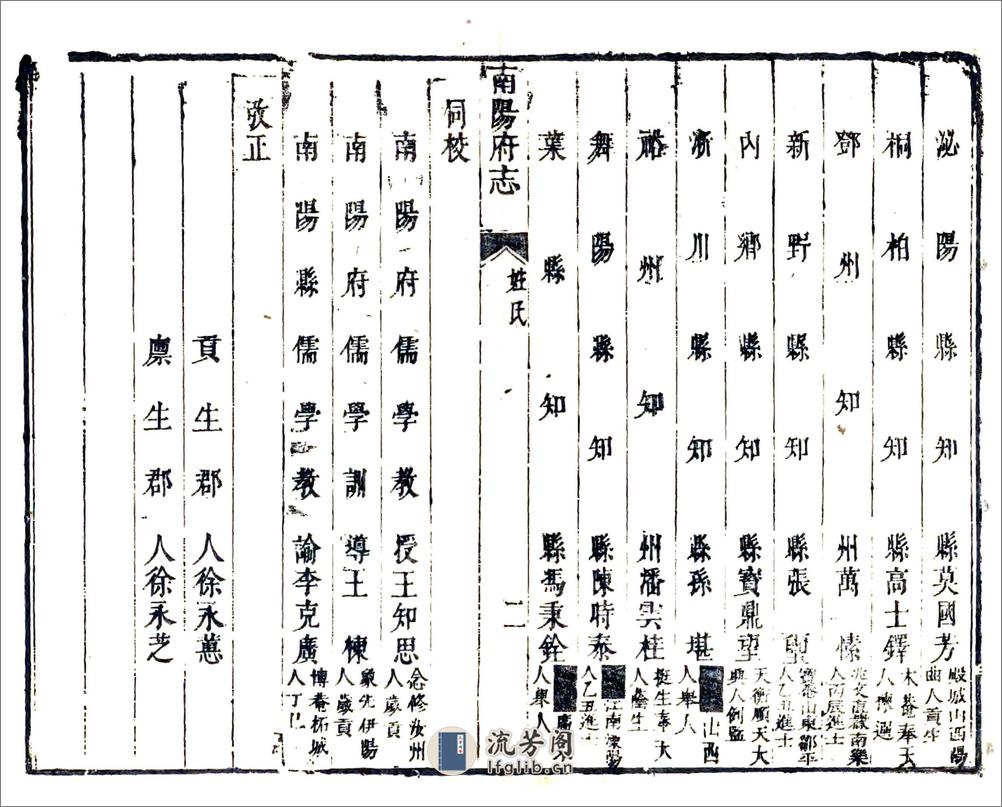 泌陽縣知縣莫國芳 山西陽曲人貢生
桐柏縣知縣高士鐸 奉天人
鄧州知州萬愫 直隸南樂人丙辰進士
新野縣知縣張 山東鄒平人乙丑進士
內鄉縣知縣寶鼎望 天衡順天大興人例監
淅川縣知縣孫堪 山西人舉人
裕州知州潘雲桂 挺生奉天人廕生
舞陽縣知縣陳時泰 江南溧陽人乙丑進士
葉縣知縣馬秉銓 人舉人
南陽府志
姓氏
二
同校
南陽府儒學教授王知思 念修汝州人歲貢
南陽府儒學訓導王棟 象先伊陽人歲貢
南陽縣儒學教諭李克廣 博菴柘城人丁
改正
貢生郡人徐永蕙
廪生郡人徐永芝
流芳阁
lfglib.cn